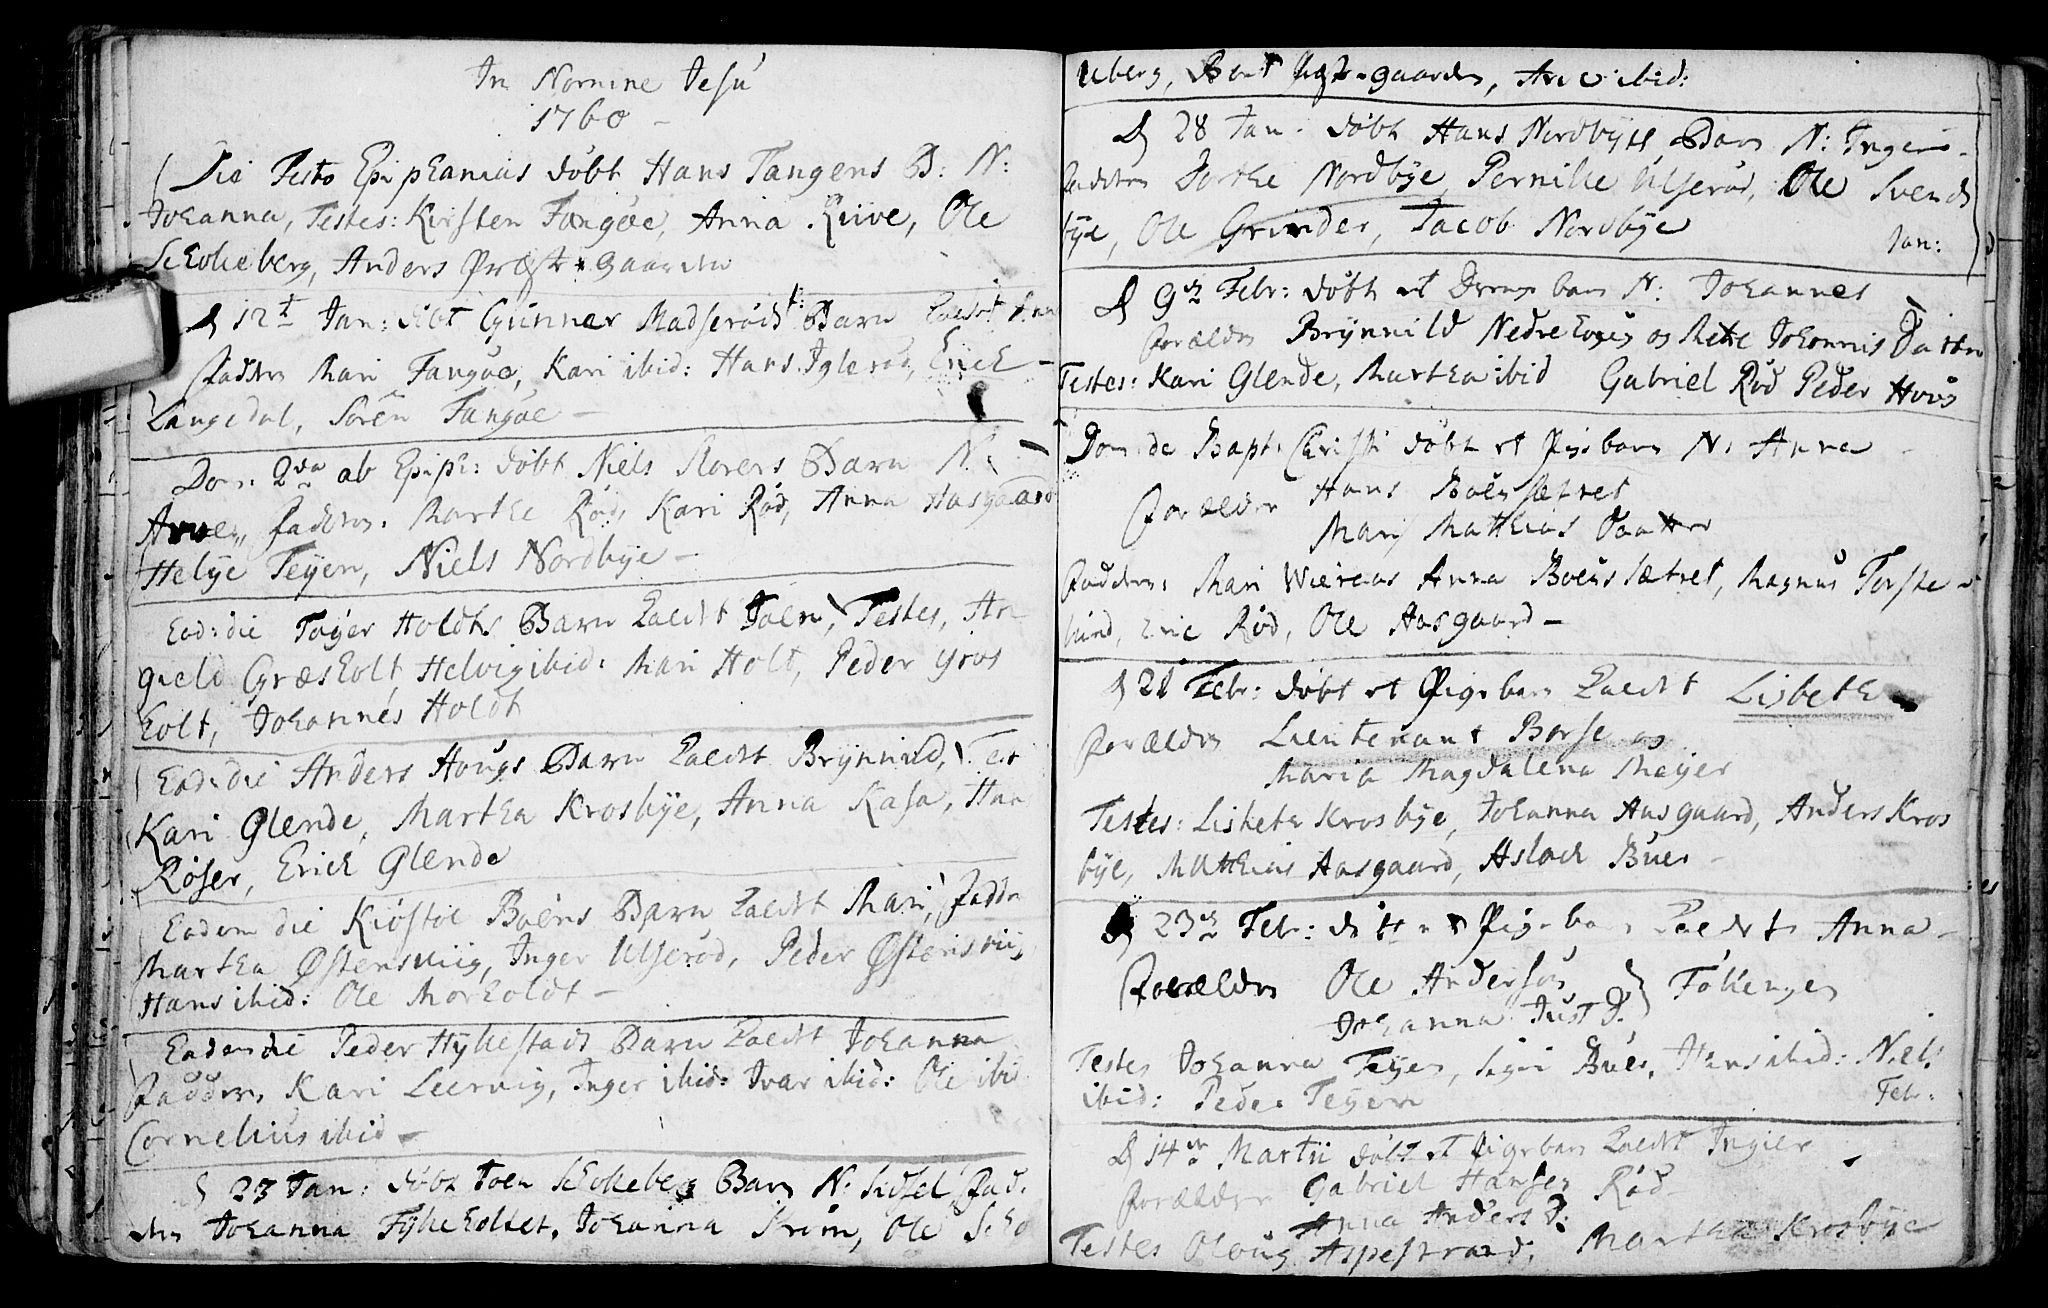 In Nomine Jesu
1760 -
Die Festo Epiphanias döbt Hans Tangens B: N:
Johanna, Testes: Kirsten Fangöe, Anna Riive, Ole
Schokeberg, Anders Præstegaarden
d 12t Jan: döbt Gunner Madserödt: Barn kaldt
Fadder Mari Fangöe, Kari ibid: Hans Iglerød, Erich -
Langedal, Sören Fangöe -
Dom 2da ab Epiph: döbt Niels Barn N:
Arve, Faddere. Marthe Röd, Kari Röd, Anna Aasgaard
Helye Teyen, Niels Nordbye -
Ead: die Tøyer Holdts Barn kaldt Joen, Testes, An
gield Græsholt, Helvig ibid: Mari Holt, Peder Græs
holt, Johannes Holdt
Ead: die Anders Hougs Barn kaldt Brynnild, Test
Kari Glende, Martha Krosbye, Anna Kasa, Han
Röser, Erich Glende
Eadem die Kiöstol Boëns Barn kaldt Mari, Fadde
Martha Østensviig, Inger Ulseröd, Peder Østensviig
Hans ibid: Ole Morholdt -
Eadem die Peder Hykestads Barn kaldt Johanna
Fadder, Kari Leervig, Inger ibid: Ivar ibid: Ole ibid
Cornelius ibid -
d 23 Jan: döbt Joen Schokeberg Barn N: Sidsel Fad.
der Johanna Fykeholtet, Johanna Krøm, Ole Scho
keberg, Berit Præstegaarden, Arve ibid:
d 28 Jan. döbt Hans Nordbyes Barn N: Inger -
Fadder Dorthe Nordbye, Pernille Ulseröd, Ole Svends
bye, Ole Grinder, Jacob Nordbye
Jan:
d 9de Febr: döbt et Drenge barn N: Johannes
Forældre Brynnild Nedrehoug og Mette Johannis Daatter
Testes: Kari Glende, Martha ibid Gabriel Röd Peder Hovs
Dom: de Bapt: Christi döbt et Pigebarn N: Anna
Forældre Hans Boënsætret
Mari Mathias Daatter
Fadder: Mari Wieraas Anna Boënsætret, Magnus Torste -
Eric Röd, Ole Aasgaard -
d 21 Febr: döbt et Pigebarn kaldt Lisbeth
Forældre Lieutenant Borse og
Maria Magdalena Meyer
Testes: Lisbeth Krosbye, Johanna Aasgaard, Anders Kros
bye, Mathias Aasgaard, Aslach Buer -
d 23de Febr: döbt et Pigebarn kaldt Anna -
Forældre Ole Andersön } Fökenges
Johanna Just D.
Testes Johanna Teyen, Sigri Buer, Hans ibid: Niels
ibid: Peder Teyen
Febr:
d 14de Martii döbt et Pigebarn kaldt Ingier
Forældre Gabriel Hansen Röd
Anna Anders D:
Testes Oloug Aspestrand, Martha Krosbye